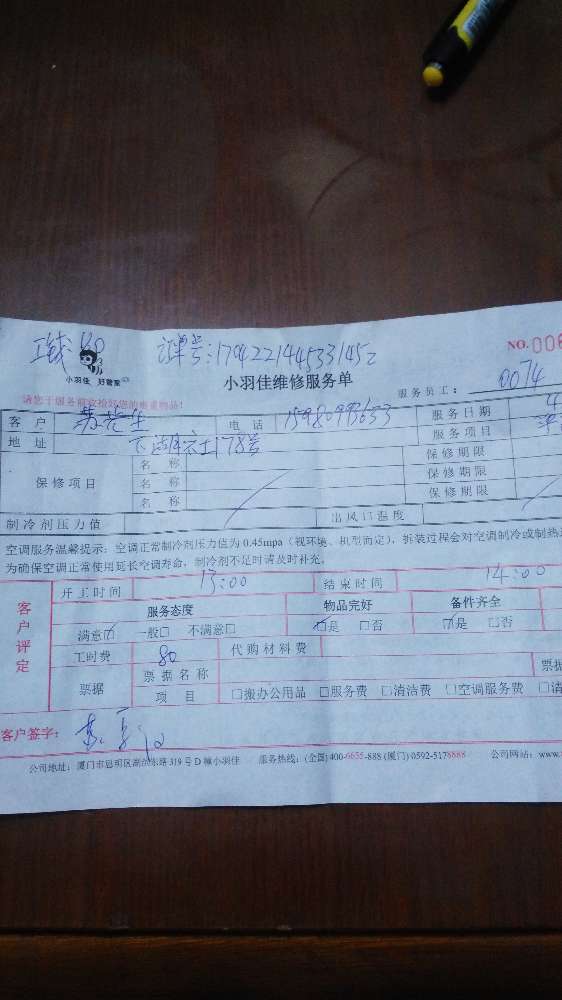 订单号:1794221445331452
NO.006
小羽佳 好管家
小羽佳维修服务单
服务员工: 0074
请您于服务前收拾好您的贵重物品!
客户 电话 15980993633 服务日期 4
地址 178号 服务项目
保修项目 名称 保修期限
名称 保修期限
名称 保修期限
制冷剂压力值 出风口温度
空调服务温馨提示:空调正常制冷剂压力值为0.45mpa(视环境、机型而定),拆装过程会对空调制冷或制热
为确保空调正常使用延长空调寿命,制冷剂不足时请及时补充。
客户评定
开工时间 13:00 结束时间 14:00
服务态度 物品完好 备件齐全
满意☑ 一般□ 不满意□ ☑是 □否 ☑是 □否
工时费 80 代购材料费
票据 票据名称 票据
项目 □搬办公用品 □服务费 □清洁费 □空调服务费 □清
客户签字:
公司地址:厦门市思明区湖滨东路319号D幢小羽佳 服务热线:(全国)400-6655-888 (厦门) 0592-5178888 公司网站:www.